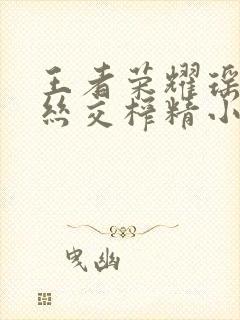 王者荣耀瑶
丝交榨精小
曳幽